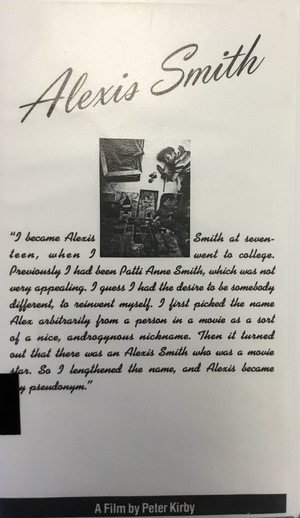 Alexis Smith
"I became Alexis Smith at seven-
teen, when I went to college.
Previously I had been Patti Anne Smith, which was not
very appealing. I guess I had the desire to be somebody
different, to reinvent myself. I first picked the name
Alex arbitrarily from a person in a movie as a sort
of a nice, androgynous nickname. Then it turned
out that there was an Alexis Smith who was a movie
star. So I lengthened the name, and Alexis became
my pseudonym."
A Film by Peter Kirby